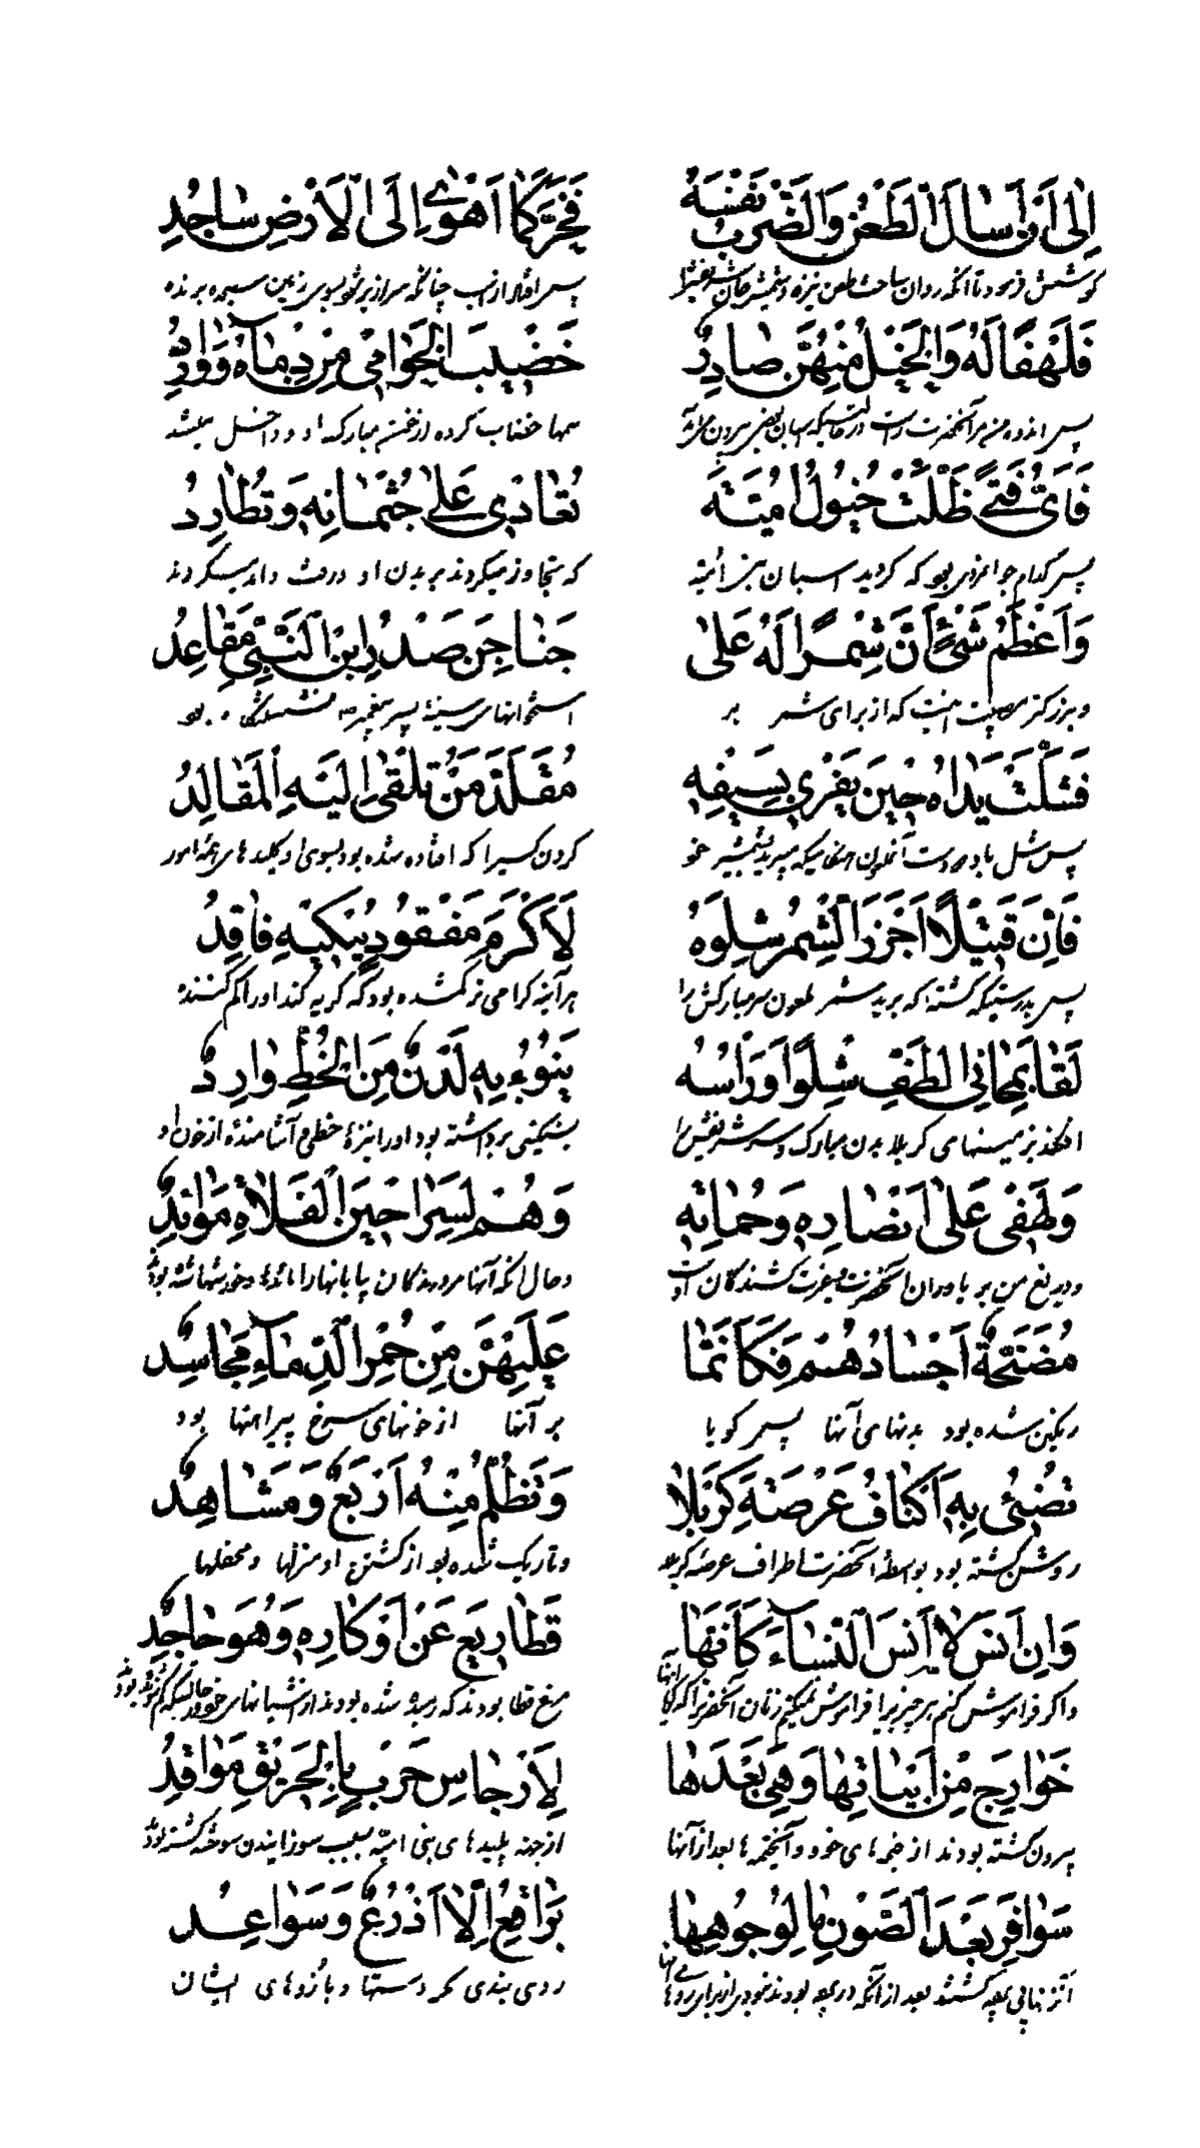 اِلىٰ اَنْ اَسٰالَ الطَّعْنُ وَالضَّرْبُ نَفْسَهُ
فَخَرَّ كَمٰا اَهْوىٰ اِلَى الْاَرْضِ سٰاجِدِ
كوشش فرمود تا آنكه روان ساخت طعن نيزه و شمشير جان شريفش را
پس افتاد از اسب چنانكه سرازير شود بسوى زمين سجده برنده
فَلَهْفًا لَهُ وَالْخَيْلُ مِنْهُنَّ صٰادِرٌ
خَضٖيبَ الْحَوٰامٖي مِنْ دِمٰآهُ وَوٰارِدُ
پس اندوه من مر آنحضرت راست در حالتيكه اسبان بعضى بيرون
سمها خضاب كرده از خون مباركه او و داخل ميشد
فَاَىُّ فَتىً ظَلَّتْ خُيُولُ اُمَيَّةَ
تُعٰادٖي عَلىٰ جُثْمٰانِهٖ وَتُطٰارِدُ
پس كدام جوانمردى بود كه گرديد اسبان بنى اميّه
كه تجاوز ميكردند بر بدن او و رفت و آمد ميكردند
وَاَعْظَمُ شَىْءٍ اَنَّ شِمْرًا لَهُ عَلىٰ
جَنٰاجِنِ صَدْرِ ابْنِ النَّبِيِّ مَقٰاعِدُ
و بزرگتر مصيبت اينست كه از براى شمر بر
استخوانهاى سينهٔ پسر پيغمبر ص نشستنگاه بود
فَشَلَّتْ يَدٰاهُ حٖينَ يَفْرٖي بِسَيْفِهٖ
مُقَلَّدَ مَنْ تُلْقىٰ اِلَيْهِ الْمَقٰالِدُ
پس شل باد دو دست آن ملعون هنگاميكه ميبريد بشمشير خود
گردن كسيرا كه افتاده شده بود بسوى او كليدهاى همهٔ امور
فَاِنَّ قَتٖيْلًا اَحْرَزَ الشِّمْرُ شِلْوَهُ
لَاَكْرَمُ مَفْقُودٍ يُبَكّٖيهِ فٰاقِدُ
پس بدرستيكه كشتهٔ كه بريد شمر ملعون سر مباركش را
هر آينه گرامى تر گمشده بود كه گريه كند او را گم كننده
لَقٰا بِمَحٰانِي الطَّفِّ شِلْوًا وَرَاْسُهُ
يَنُوْءُ بِهٖ لَدْنٌ مِنَ الْخَطِّ وٰارِدُ
افكند بزمينهاى كربلا بدن مبارك و سر شريفش را
بسنگينى برداشته بود او را نيزهٔ خطى آشامندهٔ از خون او
وَلَهْفٖي عَلىٰ اَنْصٰارِهٖ وَحُمٰاتِهٖ
وَهُمْ لِسَرٰاحٖينَ الْفَلٰاةِ مَوٰائِدُ
و دريغ من بر ياوران آنحضرت و غيرت كشندگان اوست
و حال آنكه آنها مر درندگان بيابانها را مائدها و خورشها شده بودند
مُضَمَّخَةٌ اَجْسٰادُهُمْ فَكَاَنَّمٰا
عَلَيْهِنَّ مِنْ حُمْرِ الدِّمٰآءِ مَجٰاسِدُ
رنگين شده بود بدنهاى آنها پس گويا
بر آنها از خونهاى سرخ پيراهنها بود
تُضٖيْئُ بِهٖ اَكْنٰافُ عَرْصَةِ كَرْبَلٰا
وَتُظْلَمُ مِنْهُ اَرْبُعٌ وَمَشٰاهِدُ
روشن گشته بود بواسطهٔ آنحضرت اطراف عرصهٔ كربلا
و تاريك شده بود از كشتن او منزلها و محفلها
وَاِنْ اَنْسَ لٰا اَنْسَ النِّسٰآءَ كَاَنَّهٰا
قَطٰا رٖيعَ عَنْ اَوْكٰارِهٖ وَهُوَ هٰاجِدُ
و اگر فراموش كنم هر چيز را فراموش نميكنم زنان آنحضرترا كه گويا آنها
مرغ قطا بودند كه رميده شده بودند از آشيانهاى خود در حالتيكه بودند
خَوٰارِجَ مِنْ اَبْيٰاتِهٰا وَهِيَ بَعْدَهٰا
لِاَرْجٰاسِ حَرْبٍ بِالْحَرٖيقِ مَوٰاقِدُ
بيرون گشته بودند از خيمهاى خود و آنخيمها بعد از آنها
از جهة پليدهاى بنى اميّه بسبب سوزانيدن سوخته گشته بودند
سَوٰافِرَ بَعْدَ الصَّوْنِ مٰا لِوُجُوهِهٰا
بَرٰاقِعُ اِلّٰا اَذْرُعٌ وَسَوٰاعِدُ
آنزنها بى پرده گشتند بعد از آنكه در پرده بودند نبود از براى روهاى آنها
روى بندى مگر دستها و بازوهاى ايشان